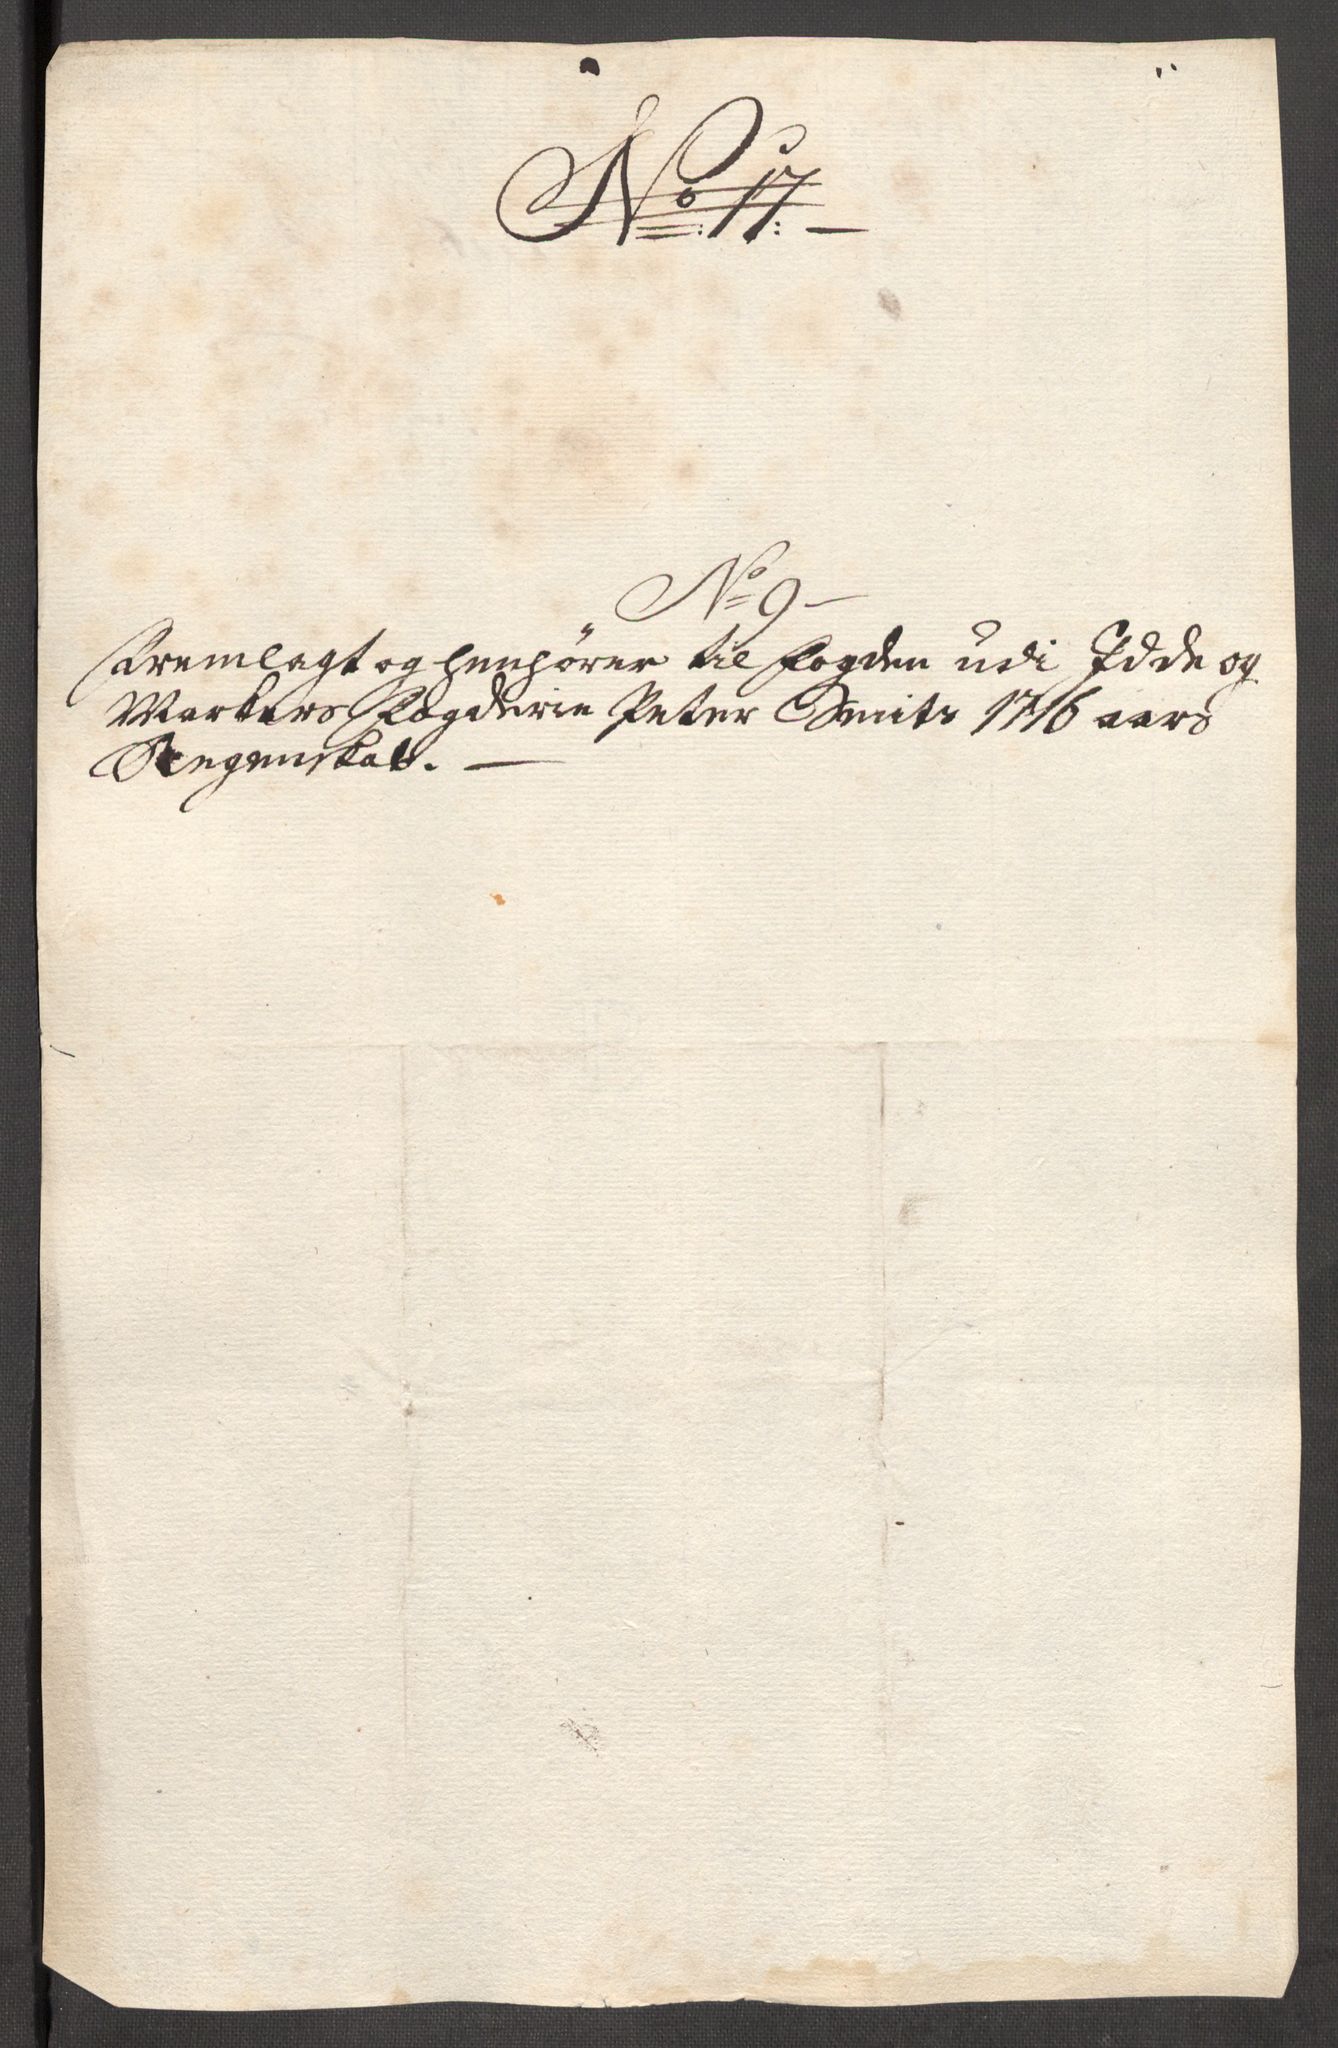 No 17.
No 9
Fremlagt og henhører til Fogden udi Idde og
Markers Fogderie Peter Smits 1716 aars
Regenskab.